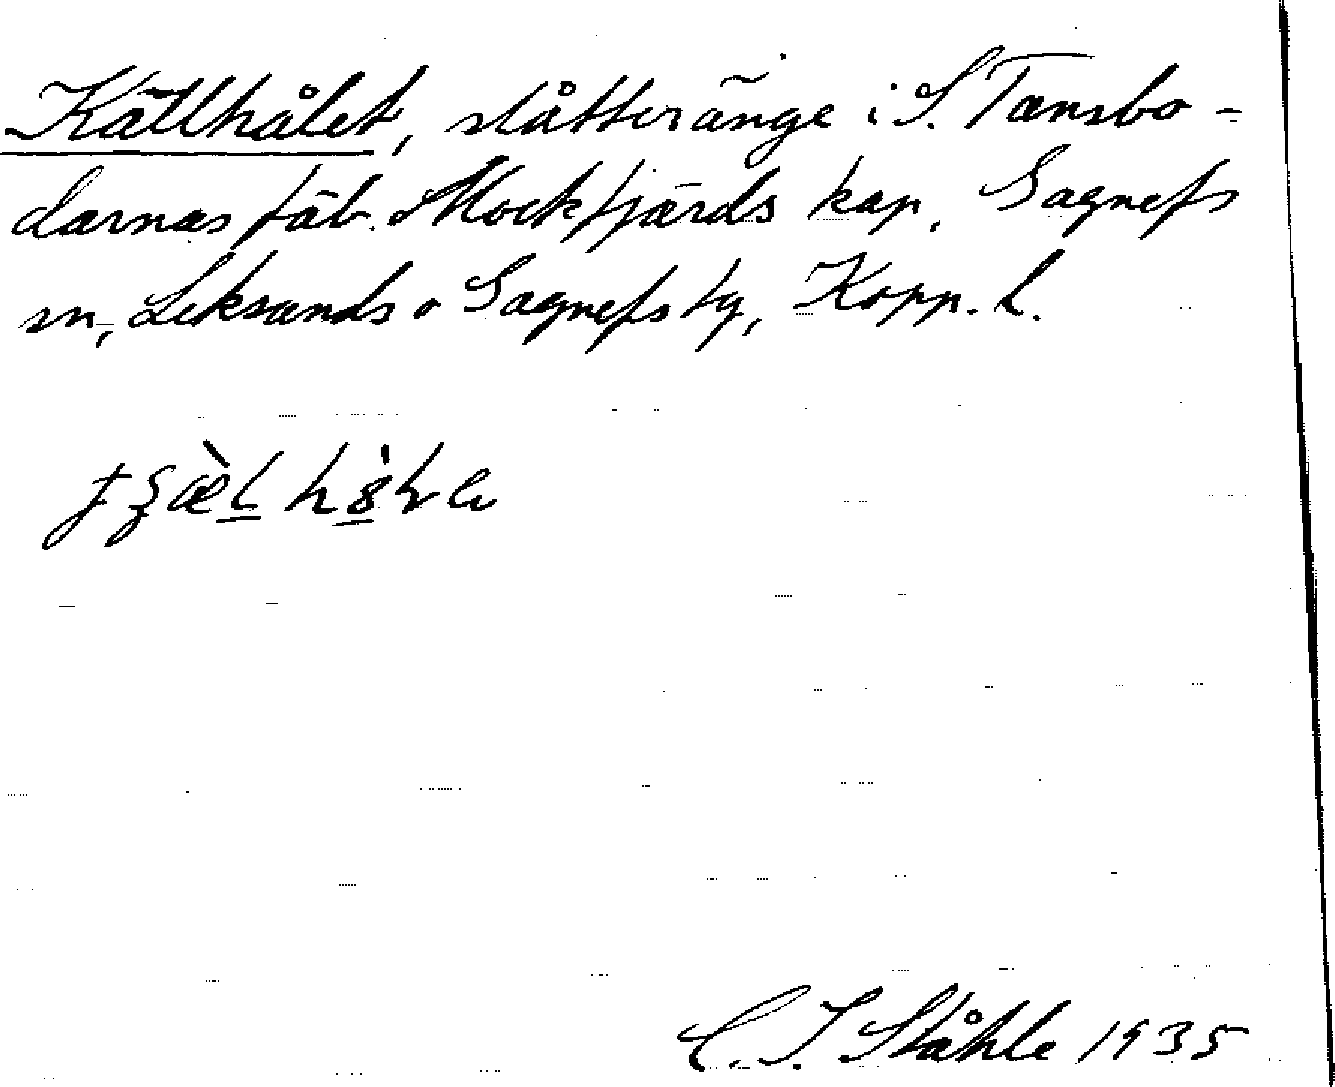 Källhålet, slåtteränge i S. Tansbo-
darnas fäb. Mockfjärds kap. Gagnefs
sn, Leksands o Gagnefs tg, Kopp. l.
C. I. Ståhle 1935